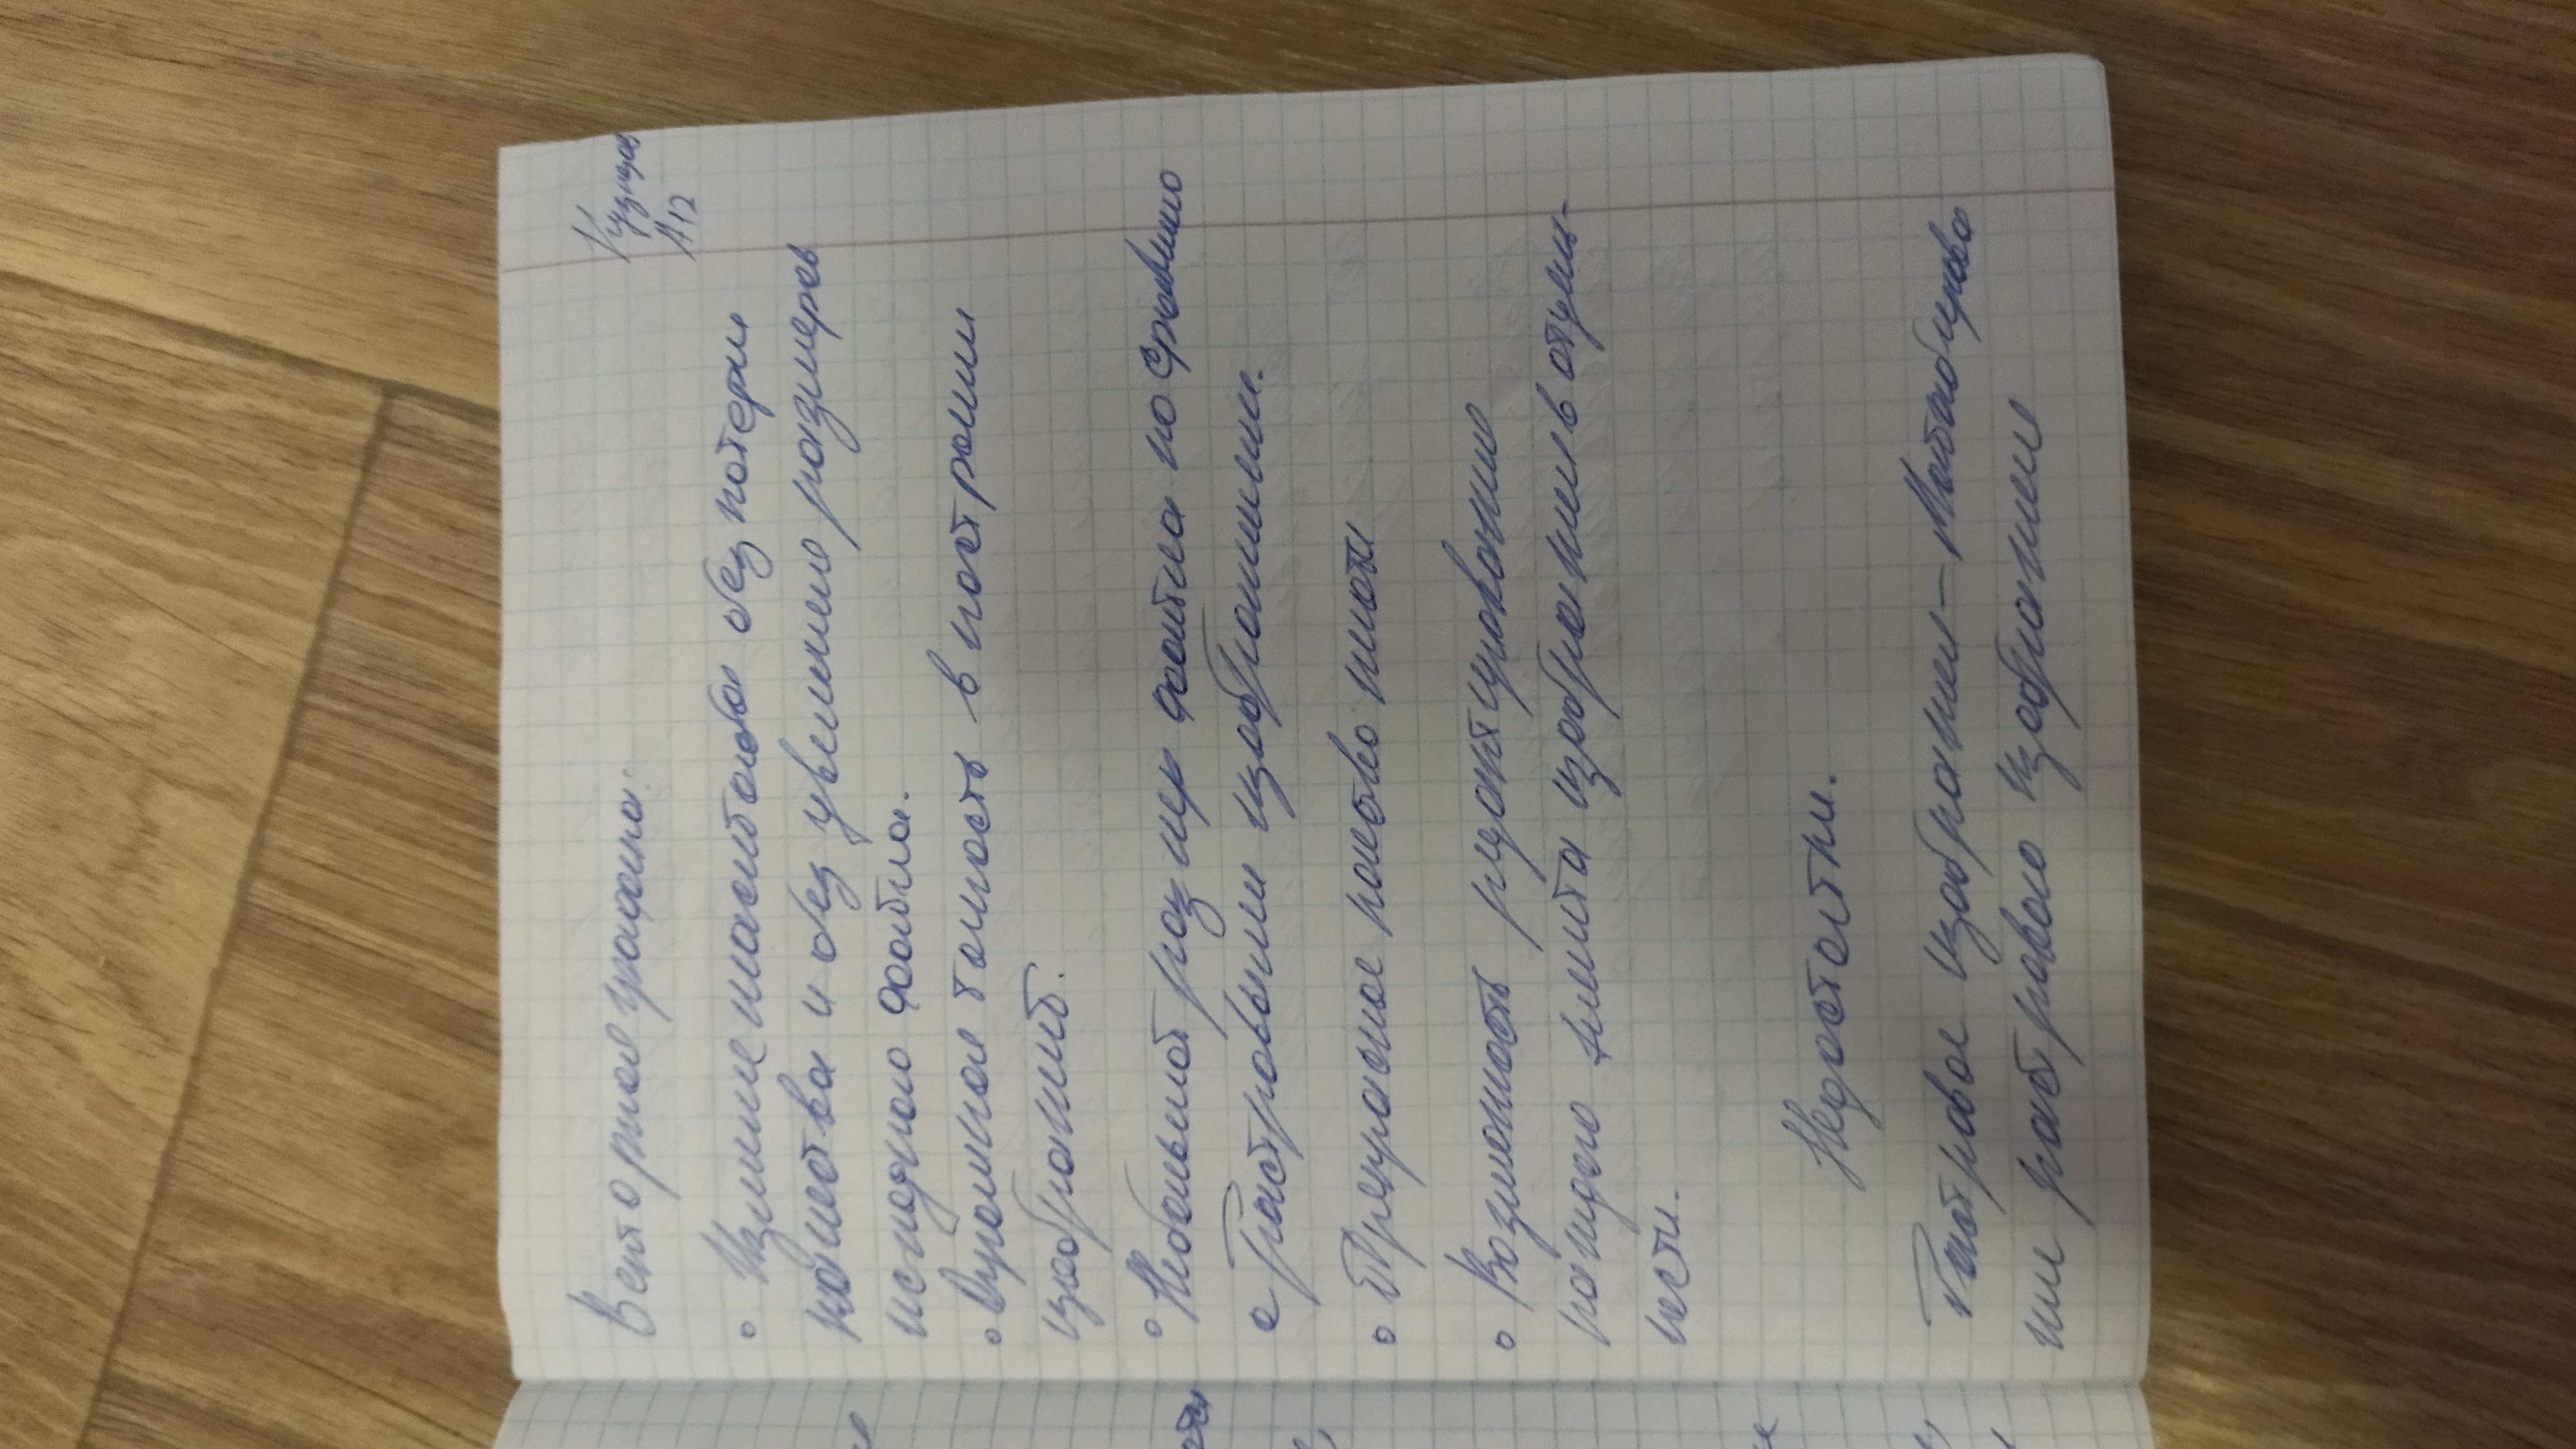 Кузнецов
А12
Векторная графика:
• Измение масштаба без потери
качества и без увелично размеров
исходного файла.
• Огромная точность в построили
изображний.
• Небольшой размер файла по сравнию
с Растровыми изображиями.
• Прекрасное качество печати
• Возможность редактировано
каждого элемита изображние в отдель-
ности.
Недостатки.
Растровое изображние –
растрового изображние